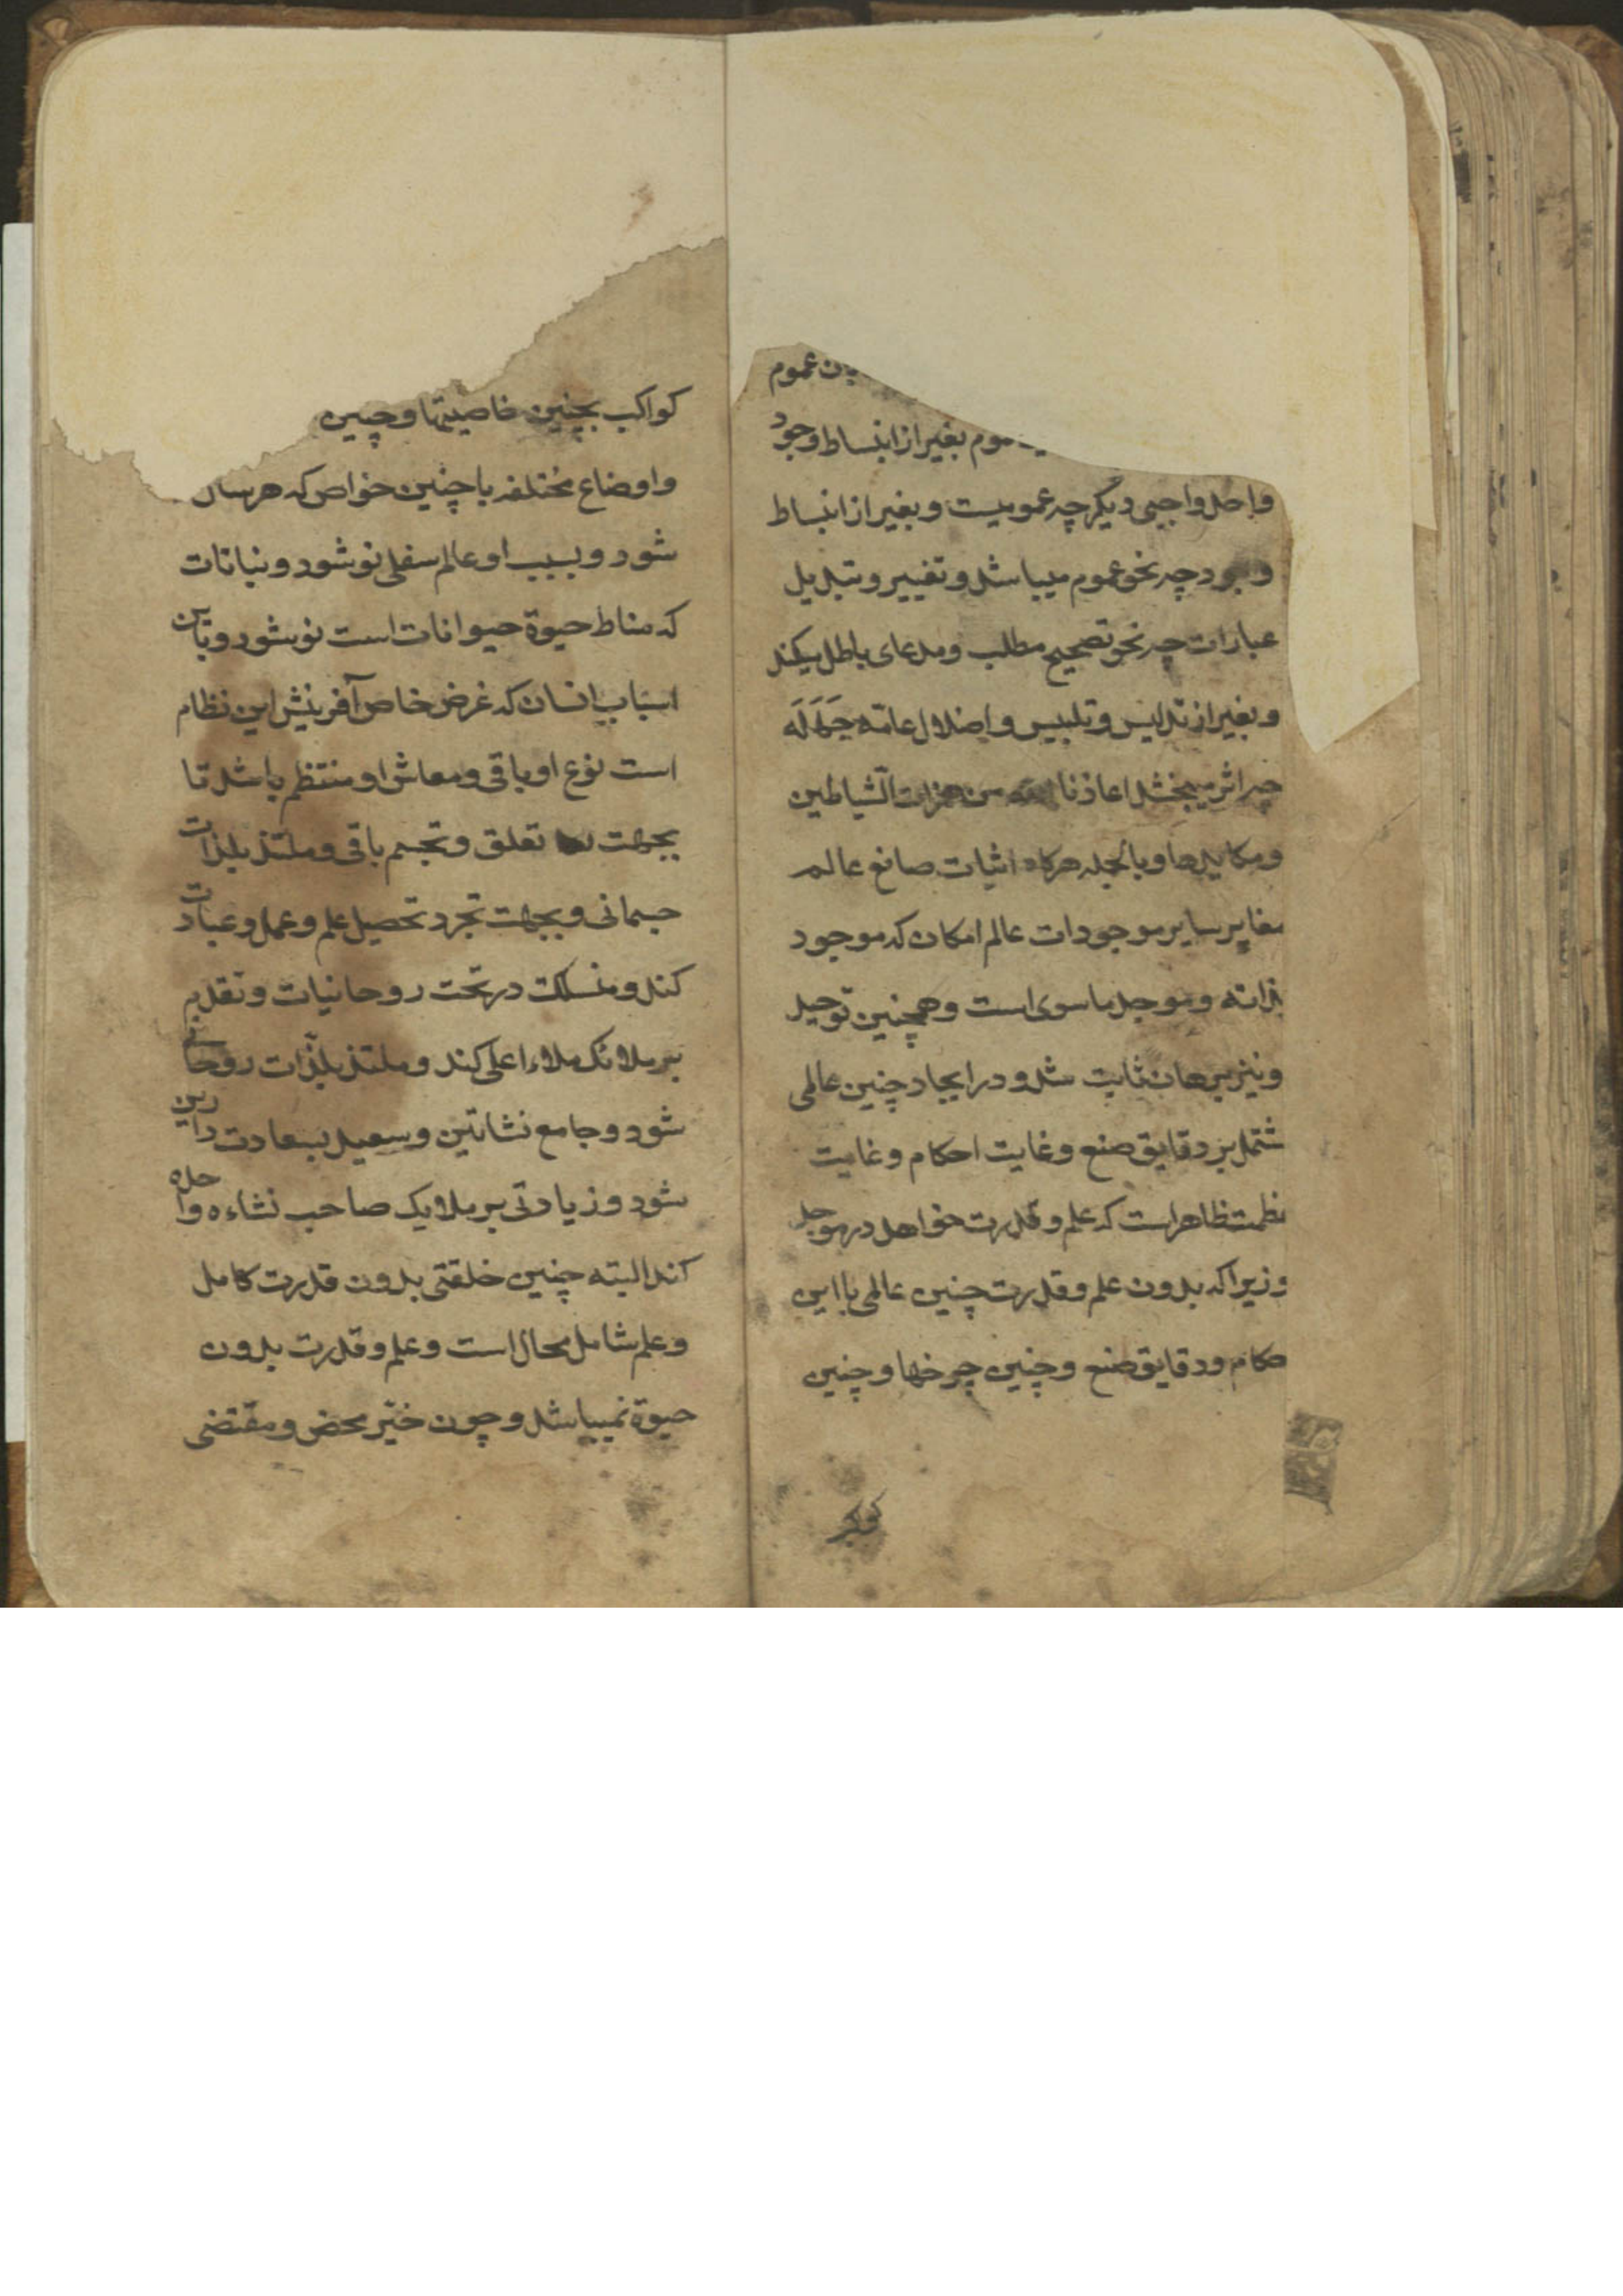 عموم
بغیر از انبساط وجود
واحد واجبی دیگر چه عمومیست و بغیر از انبساط
وجود چه نحو عموم میباشد و تغییر و تبدیل
عبارات چه نحو تصحیح مطلب و مدعای باطل میکند
و بغیر از تدلیس و تلبیس و اضلال عامّه جَهَلَه
چه اثر میبخشد اعاذنا الله من همزات الشّیاطین
و مکایدها و بالجمله هرکاه اثبات صانع عالم
مغایر سایر موجودات عالم امکان که موجود
بذاته و موجد ماسوی است و همچنین توحید
و نیز برهان ثابت شد و در ایجاد چنین عالمی
شتمل بر دقایق صنع و غایت احکام و غایت
ظاهر است که علم و قدرت خواهد در موجد
و زیرا که بدون علم و قدرت چنین عالمی با این
حکام و دقایق صنع و چنین چرخها و چنین
کواکب
کواکب بچنین خاصیتها و چنین
و اوضاع مختلفه با چنین خواص که هر سال
شود و بسبب او عالم سفلی نو شود و نباتات
که مناط حیوة حیوانات است نو شود و بآن
اسباب انسان که غرض خاص آفرینش این نظام
است نوع او باقی و معاش او منتظم باشد تا
بجهت تعلق و تجسم باقی و ملتذ بلذات
جسمانی و بجهت تجرد تحصیل علم و عمل و عبادت
کند و منسلک در تحت روحانیات و تقدیم
بر ملائک ملاء اعلی کند و ملتذ بلذّات روحانی
شود و جامع نشاتین و سعید بسعادت دارین
شود و زیادتی بر ملایک صاحب نشاءه واحده
کند البته چنین خلقتی بدون قدرت کامل
و علم شامل محال است و علم و قدرت بدون
حیوة نمیباشد و چون خیّر محض و مقتضی